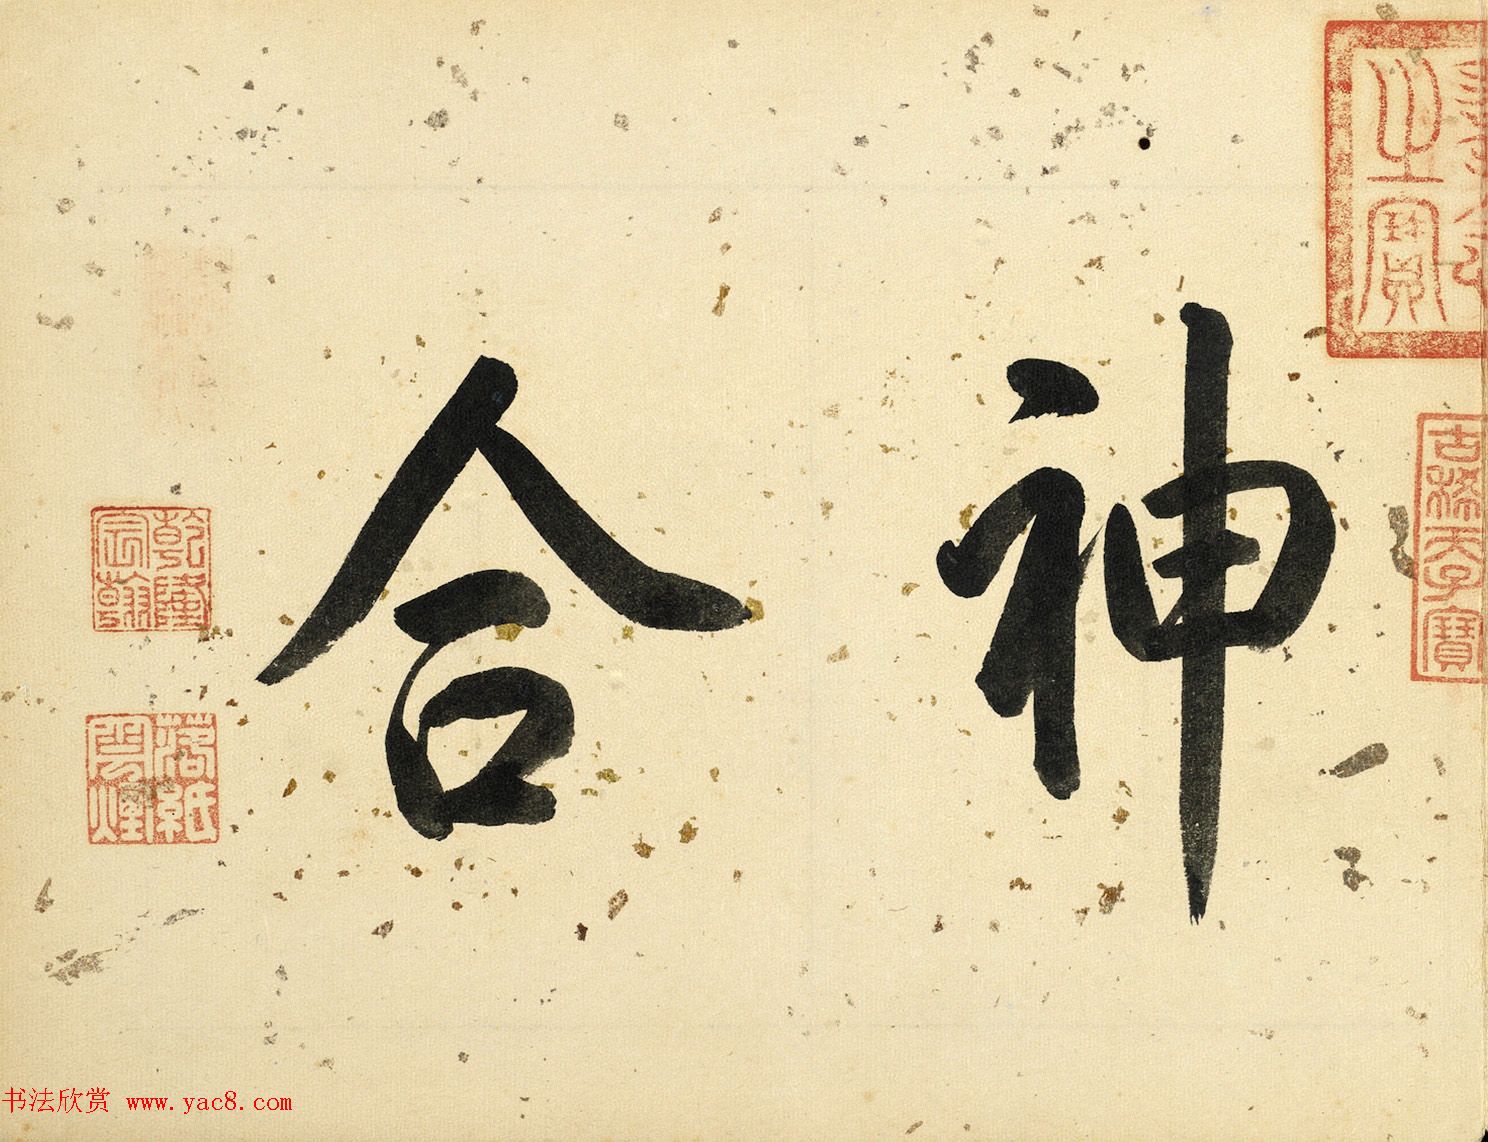 神合
之寶
古稀天子寶
乾隆宸翰
落紙雲煙
书法欣赏 www.yac8.com